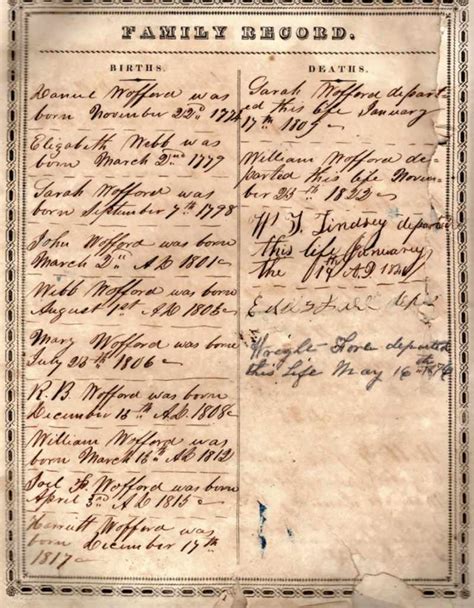 FAMILY RECORD.
BIRTHS.
Daniel Wofford was
born November 22nd 1774
Elizabeth Webb was
born March 2nd 1779
Sarah Wofford was
born September 7th 1798
John Wofford was born
March 2nd AD 1801
Webb Wofford was born
August 1st AD 1803
Mary Wofford was born
July 25th 1806
R. B Wofford was born
December 15th AD. 1808
William Wofford was
born March 15th AD 1812
Joel Wofford was born
April 3rd AD 1815
Harriett Wofford was
born December 17th
1817
DEATHS.
Sarah Wofford depart
ed this life January
17th 1809
William Wofford de-
parted this life Novem
ber 23th 1822
Lindsey departed
this life January
the 19th AD
Wright departed
this Life May 16th